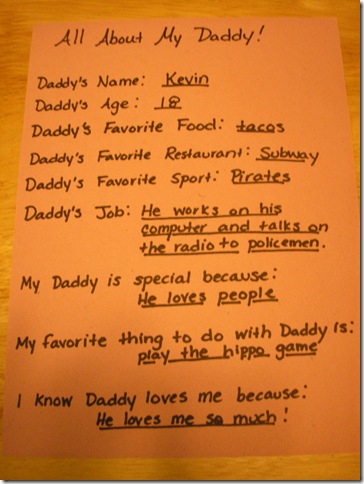 All About My Daddy!
Daddy's Name: Kevin
Daddy's Age: 18
Daddy's Favorite Food: tacos
Daddy's Favorite Restaurant: Subway
Daddy's Favorite Sport: Pirates
Daddy's Job: He works on his
computer and talks on
the radio to policemen.
My Daddy is special because:
He loves people
My favorite thing to do with Daddy is:
play the hippo game
I know Daddy loves me because:
He loves me so much!